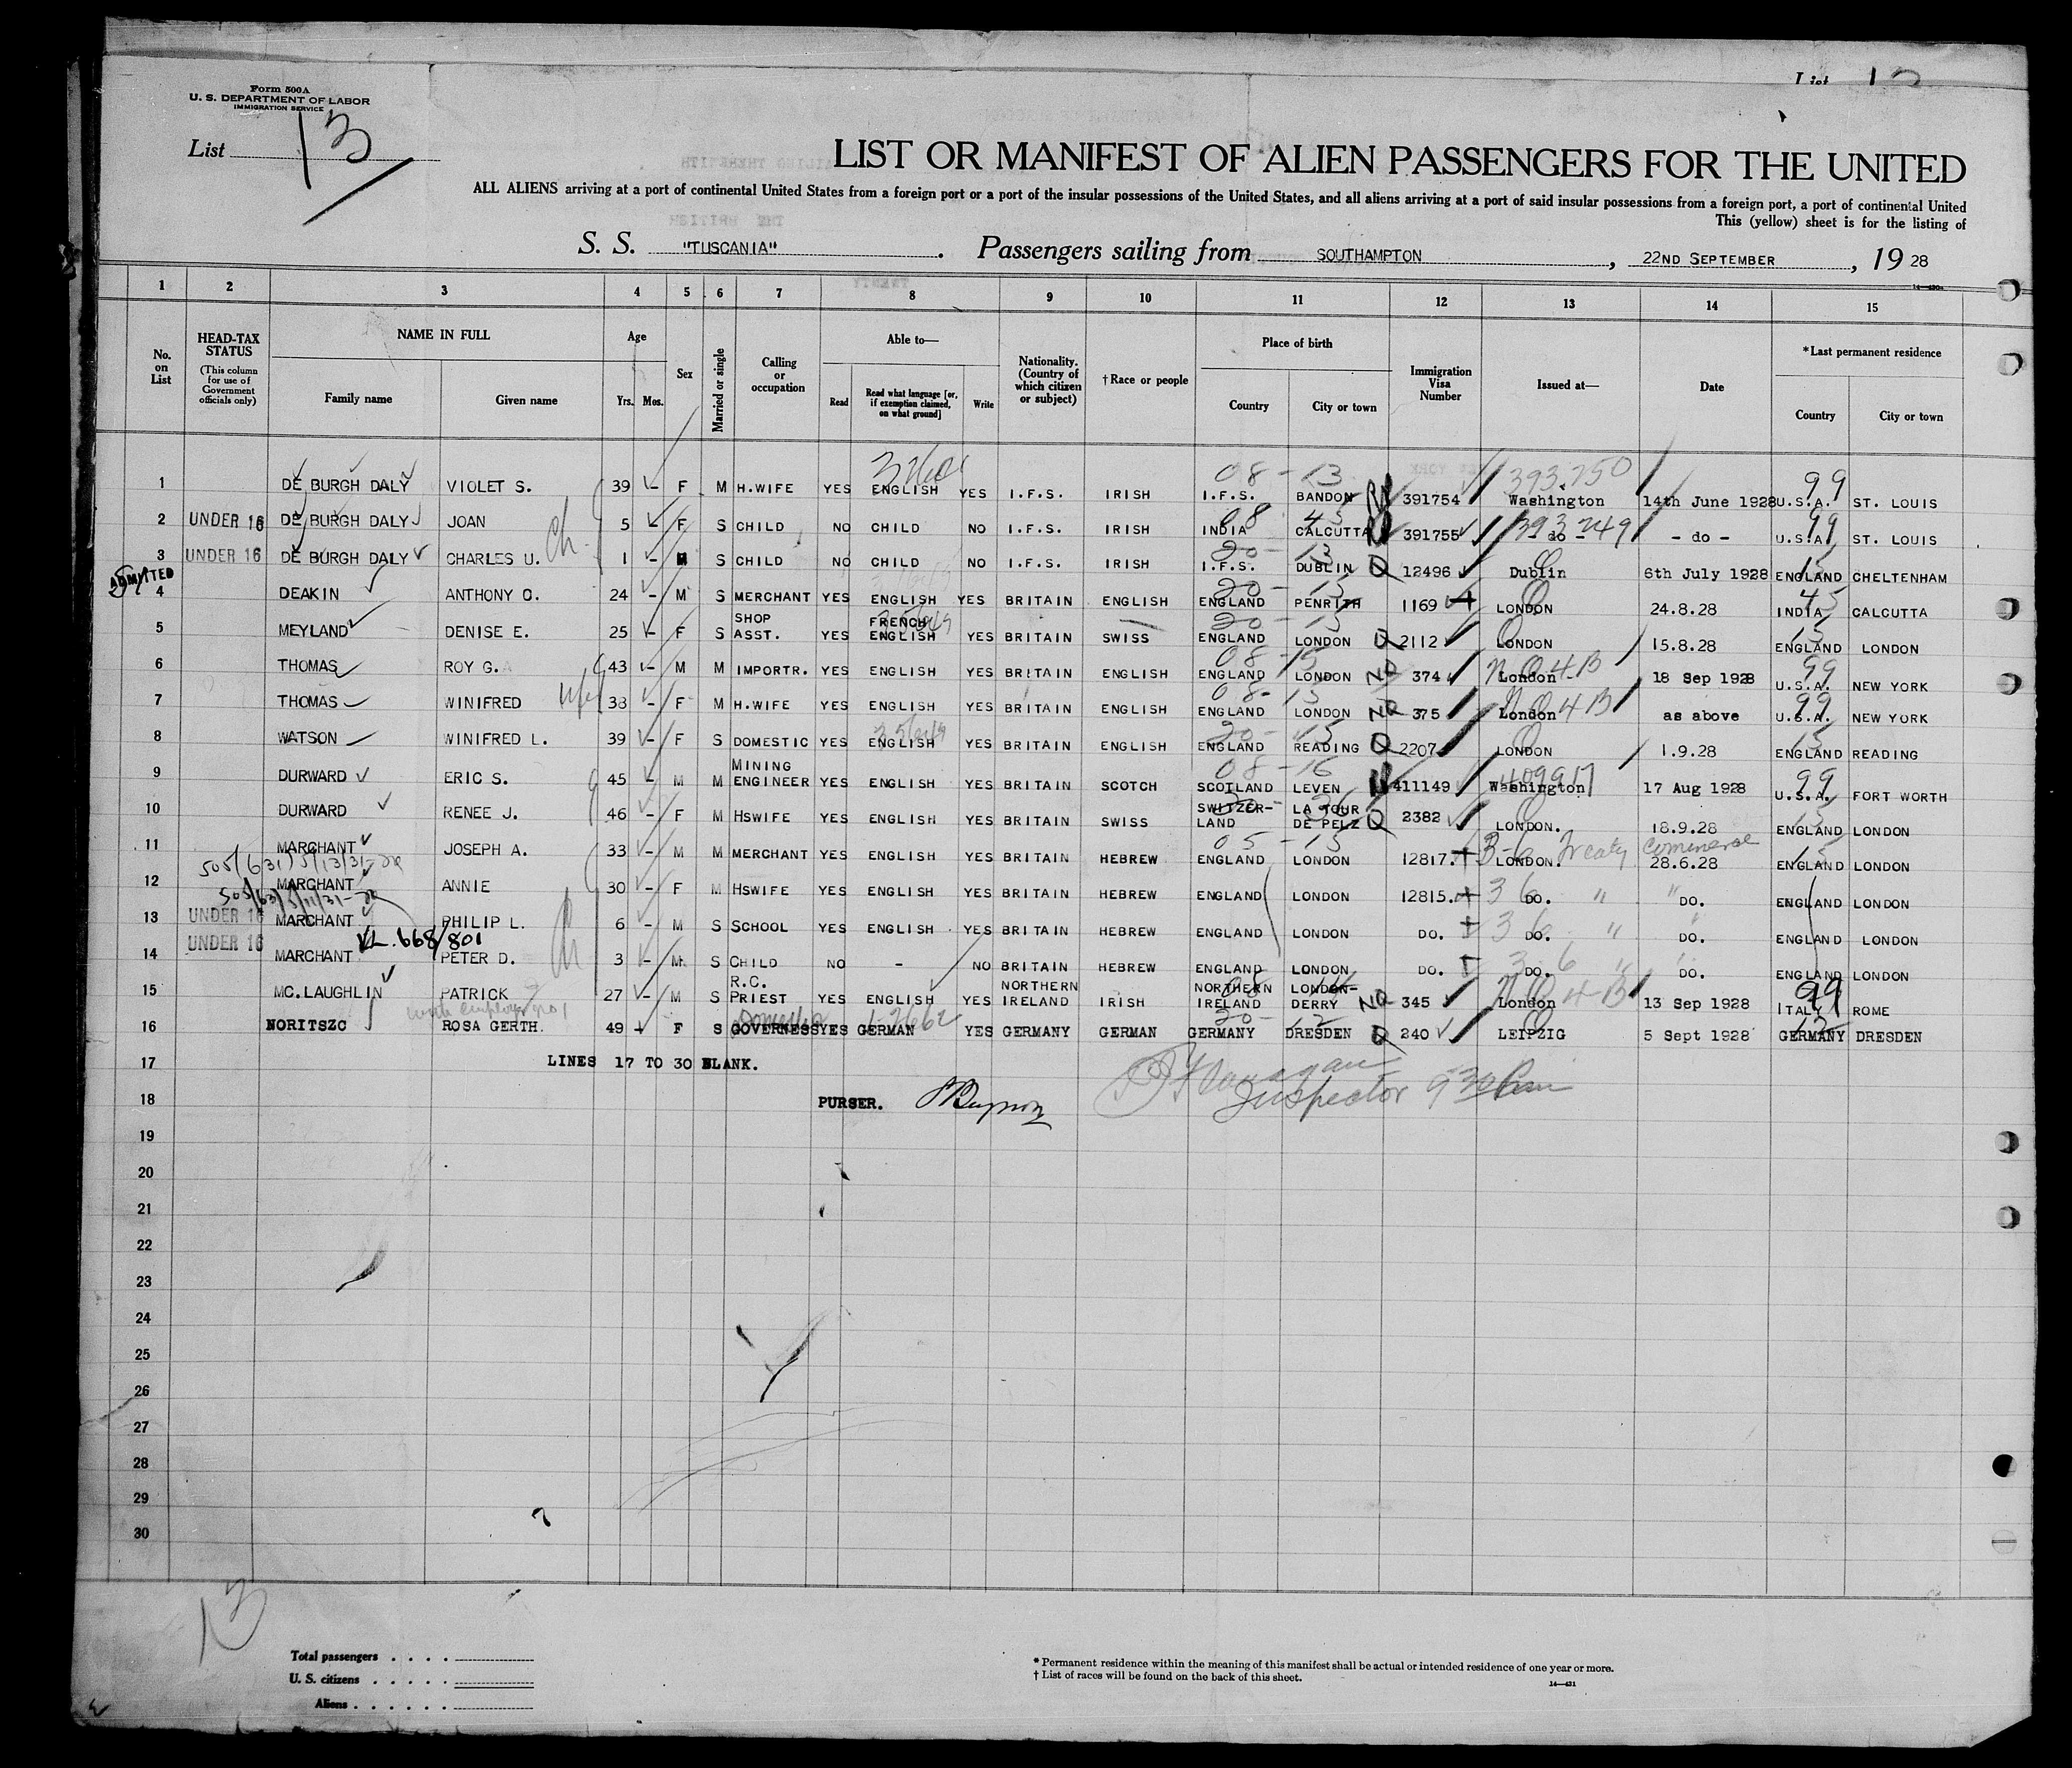 Form 500A
U. S. DEPARTMENT OF LABOR
IMMIGRATION SERVICE
List
List 13
LIST OR MANIFEST OF ALIEN PASSENGERS FOR THE UNITED
ALL ALIENS arriving at a port of continental United States from a foreign port or a port of the insular possessions of the United States, and all aliens arriving at a port of said insular possessions from a foreign port, a port of continental United
This (yellow) sheet is for the listing of
S. S. "TUSCANIA". Passengers sailing from SOUTHAMPTON, 22ND SEPTEMBER, 19 28
1 2 3 4 5 6 7 8 9 10 11 12 13 14 15
No. on List
HEAD-TAX STATUS
(This column for use of Government officials only)
NAME IN FULL
Family name Given name
Age
Yrs. Mos.
Sex
Married or single
Calling or occupation
Able to—
Read
Read what language [or, if exemption claimed, on what ground]
Write
Nationality. (Country of which citizen or subject)
† Race or people
Place of birth
Country City or town
Immigration Visa Number
Issued at—
Date
*Last permanent residence
Country City or town
08-13 393250 99
1 DE BURGH DALY VIOLET S. 39 - F M H.WIFE YES ENGLISH YES I.F.S. IRISH I.F.S. BANDON 391754 Washington 14th June 1928 U.S.A. ST. LOUIS
08 45 393249 99
2 UNDER 16 DE BURGH DALY JOAN 5 - F S CHILD NO CHILD NO I.F.S. IRISH INDIA CALCUTTA 391755 - do - - do - U.S.A. ST. LOUIS
20-13 Q 15
3 UNDER 16 DE BURGH DALY CHARLES U. 1 - M S CHILD NO CHILD NO I.F.S. IRISH I.F.S. DUBLIN 12496 Dublin 6th July 1928 ENGLAND CHELTENHAM
ADMITTED 20-15 45
4 DEAKIN ANTHONY O. 24 - M S MERCHANT YES ENGLISH YES BRITAIN ENGLISH ENGLAND PENRITH 1169 LONDON 24.8.28 INDIA CALCUTTA
20-15 Q 15
5 MEYLAND DENISE E. 25 - F S SHOP ASST. YES FRENCH ENGLISH YES BRITAIN SWISS ENGLAND LONDON 2112 LONDON 15.8.28 ENGLAND LONDON
08-15 NQ NQ 4-B 99
6 THOMAS ROY G. 43 - M M IMPORTR. YES ENGLISH YES BRITAIN ENGLISH ENGLAND LONDON 374 London 18 Sep 1928 U.S.A. NEW YORK
08-13 NQ NQ 4B 99
7 THOMAS WINIFRED 38 - F M H.WIFE YES ENGLISH YES BRITAIN ENGLISH ENGLAND LONDON 375 London as above U.S.A. NEW YORK
20-15 Q 15
8 WATSON WINIFRED L. 39 - F S DOMESTIC YES ENGLISH YES BRITAIN ENGLISH ENGLAND READING 2207 LONDON 1.9.28 ENGLAND READING
08-16 409917 99
9 DURWARD ERIC S. 45 - M M MINING ENGINEER YES ENGLISH YES BRITAIN SCOTCH SCOTLAND LEVEN 411149 Washington 17 Aug 1928 U.S.A. FORT WORTH
10 DURWARD RENEE J. 46 - F M HSWIFE YES ENGLISH YES BRITAIN SWISS SWITZER-LAND LA TOUR DE PELZ Q 2382 LONDON. 18.9.28 ENGLAND LONDON
05-15 3-6 Treaty Commerce 15
11 MARCHANT JOSEPH A. 33 - M M MERCHANT YES ENGLISH YES BRITAIN HEBREW ENGLAND LONDON 12817. LONDON. 28.6.28 ENGLAND LONDON
12 MARCHANT ANNIE 30 - F M HSWIFE YES ENGLISH YES BRITAIN HEBREW ENGLAND LONDON 12815. 3 6 DO. " DO. ENGLAND LONDON
13 UNDER 16 MARCHANT PHILIP L. 6 - M S SCHOOL YES ENGLISH YES BRITAIN HEBREW ENGLAND LONDON DO. 3 6 DO. " DO. ENGLAND LONDON
VL.668/801
14 UNDER 16 MARCHANT PETER D. 3 - M S CHILD NO - NO BRITAIN HEBREW ENGLAND LONDON DO. 3 6 DO. " DO. ENGLAND LONDON
15 MC.LAUGHLIN PATRICK 27 - M S R.C. PRIEST YES ENGLISH YES NORTHERN IRELAND IRISH NORTHERN IRELAND LONDON-DERRY NQ 345 London NQ 4-B 13 Sep 1928 ITALY 99 ROME
Domestic 20-12 12
16 NORITSZC ROSA GERTH. 49 F S GOVERNESS YES GERMAN YES GERMANY GERMAN GERMANY DRESDEN Q 240 LEIPZIG 5 Sept 1928 GERMANY DRESDEN
17 LINES 17 TO 30 BLANK.
18 PURSER. Inspector 9 30 Pm
19
20
21
22
23
24
25
26
27
28
29
30
13
Total passengers
U. S. citizens
Aliens
* Permanent residence within the meaning of this manifest shall be actual or intended residence of one year or more.
† List of races will be found on the back of this sheet.
14—431